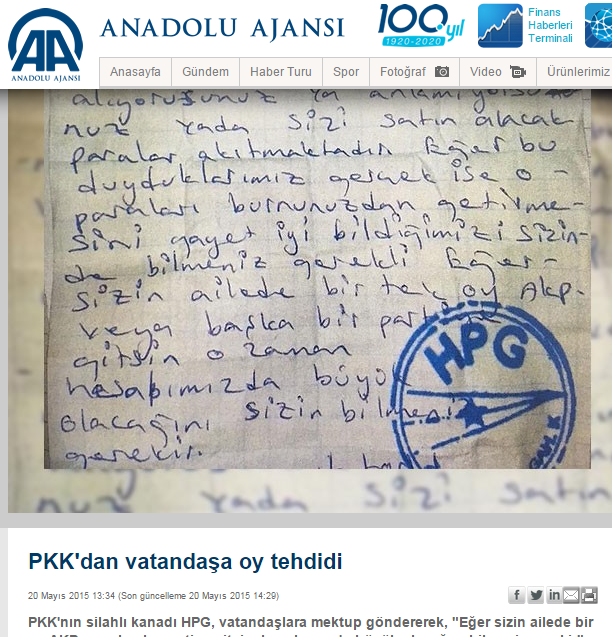 AA
ANADOLU AJANSI
ANADOLU AJANSI
100.yıl
1920-2020
Finans
Haberleri
Terminali
Anasayfa Gündem Haber Turu Spor Fotoğraf Video Ürünlerimiz
alıyorsunuz ya
nuz yada sizi satın alacak
paralar akıtmaktadır Eğer bu
duyduklarımız gerçek ise o -
paraları burnunuzdan getirme-
sini gayet iyi bildiğimizi sizin-
de bilmeniz gerekli Eğer-
sizin ailede bir tek oy Akp-
veya başka bir partiye
gitsin o zaman
hesabımızda büyük
olacağını sizin bilmeniz
gerekir.
HPG
yada sizi satın
PKK'dan vatandaşa oy tehdidi
20 Mayıs 2015 13:34 (Son güncelleme 20 Mayıs 2015 14:29)
f in
PKK'nın silahlı kanadı HPG, vatandaşlara mektup göndererek, "Eğer sizin ailede bir